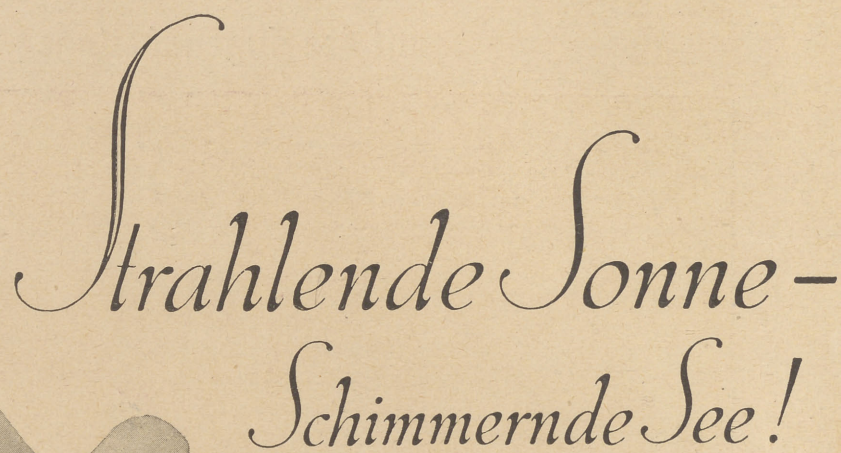 Strahlende Sonne –
Schimmernde See!